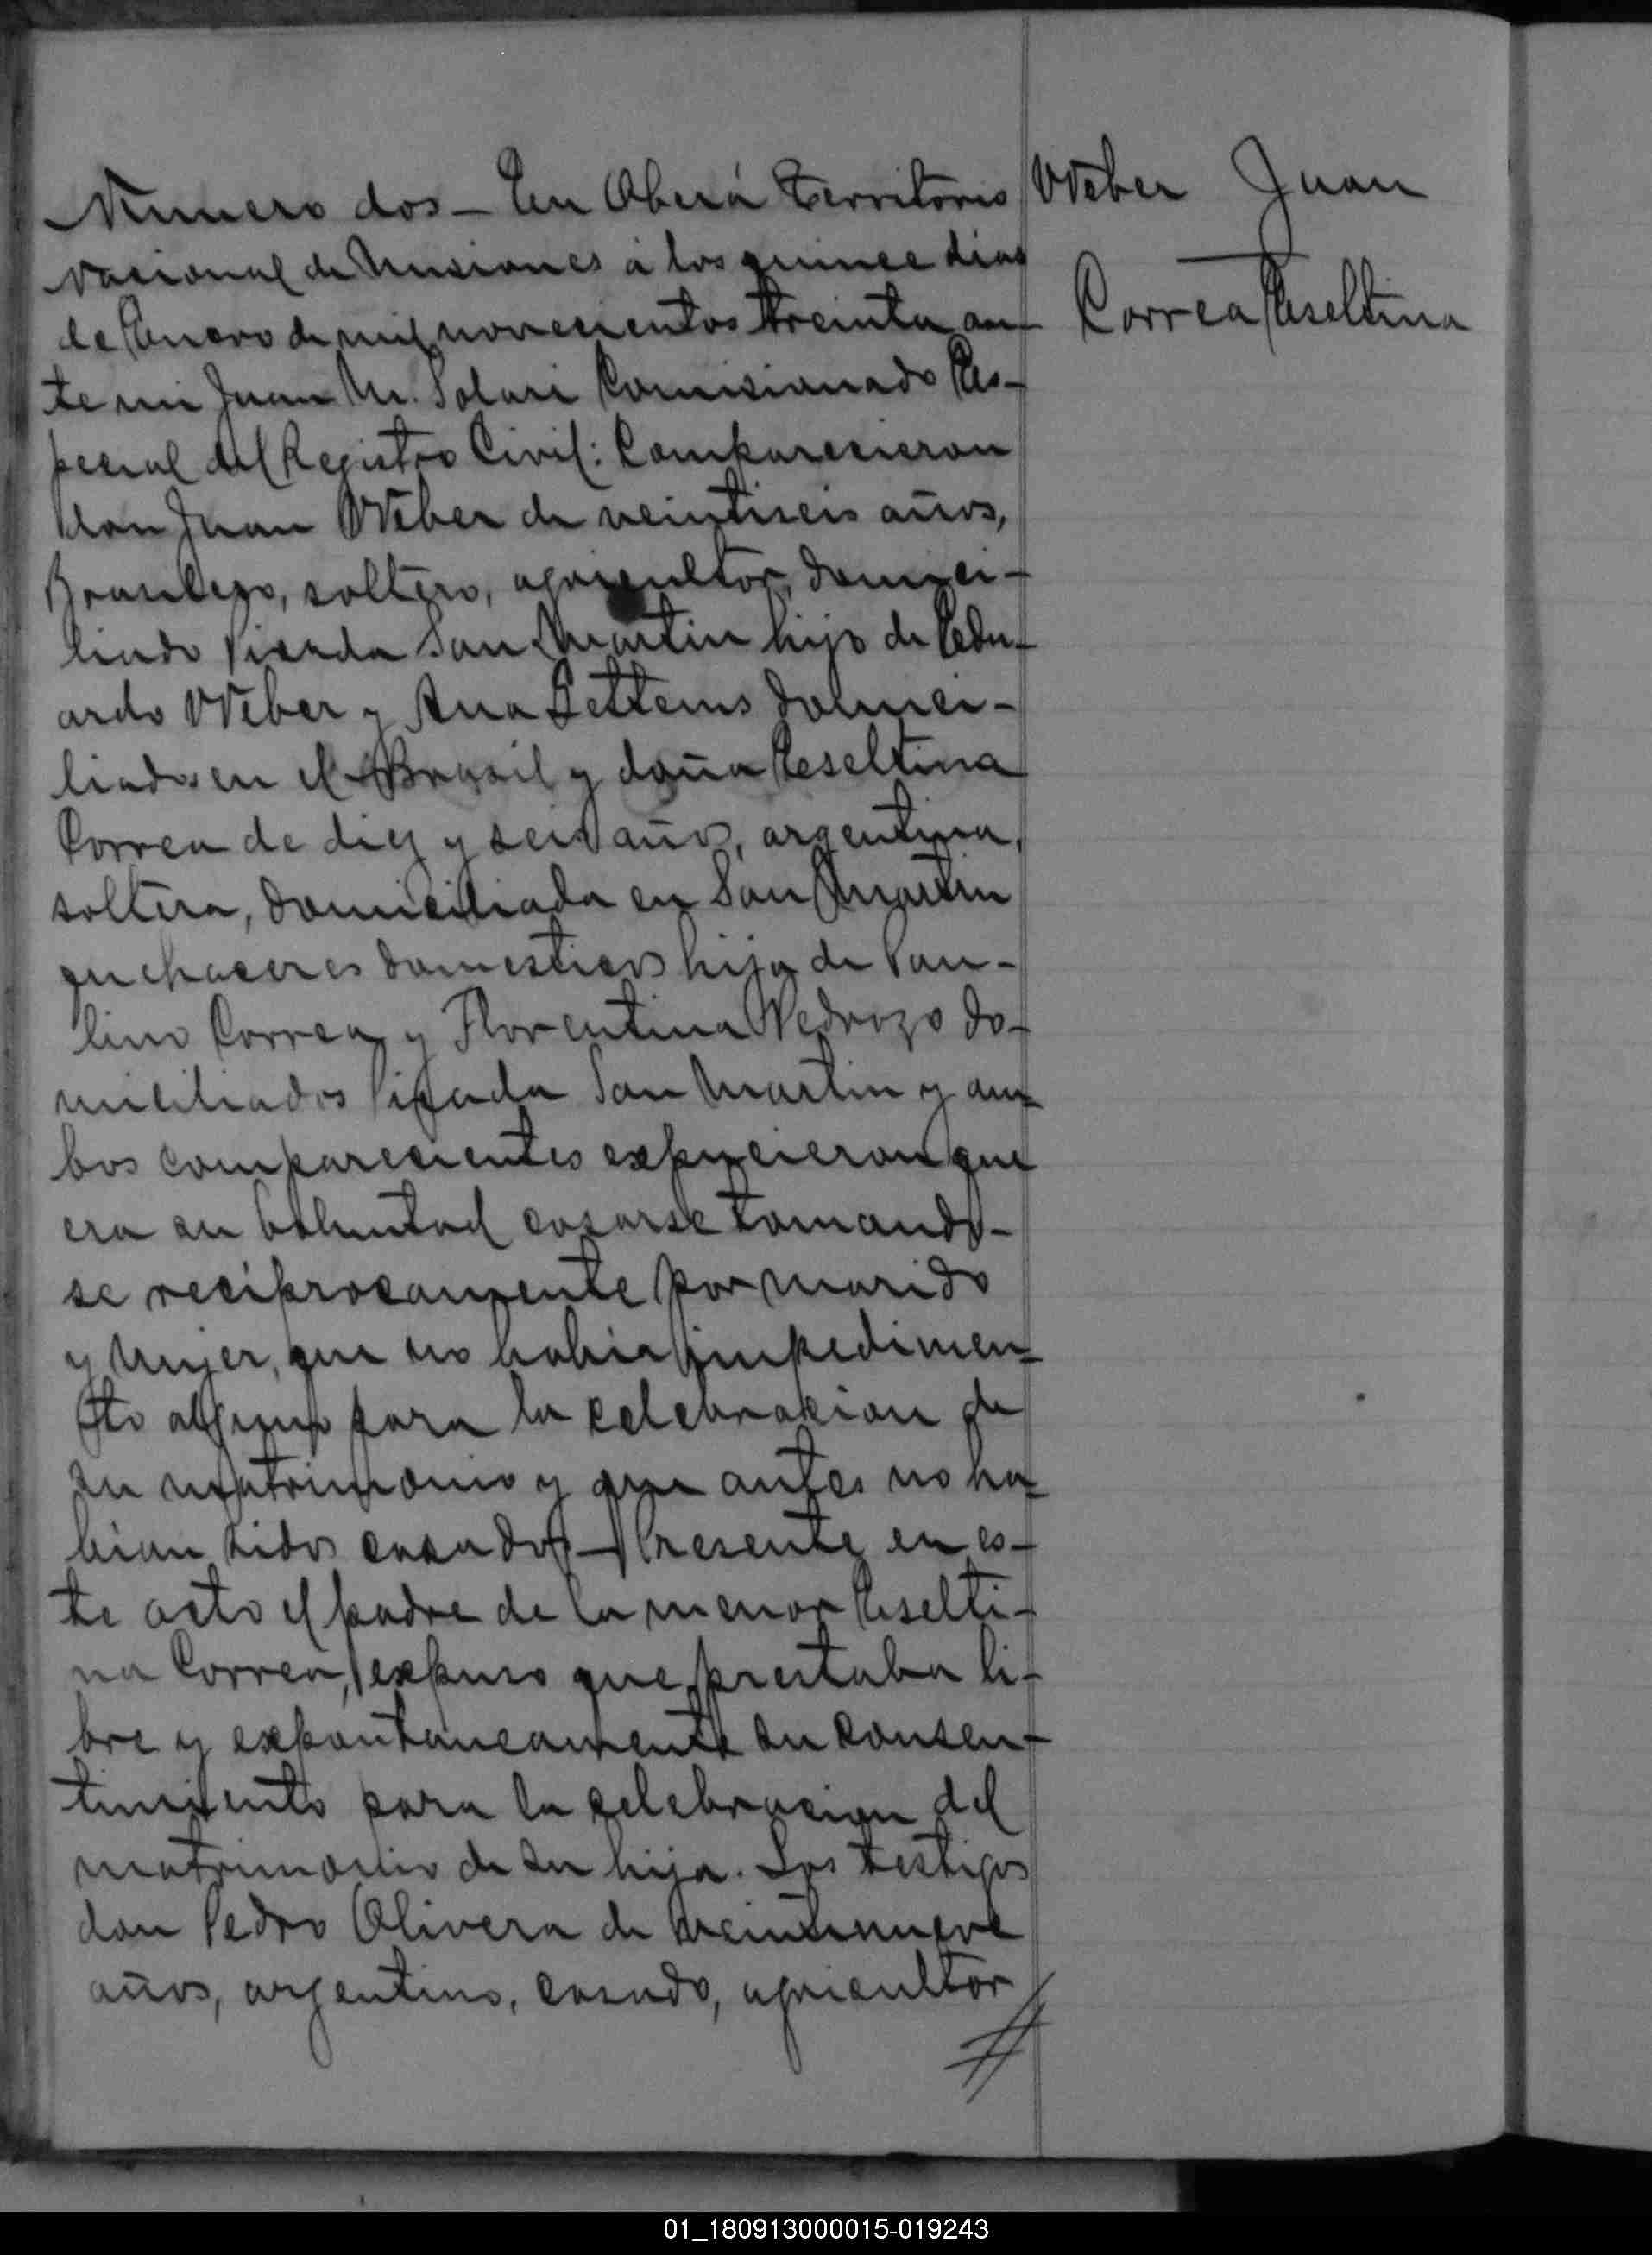 Numero dos - En Oberá Territorio
Nacional de Misiones á los quince dias
de Enero de mil novecientos treinta an-
te mi Juan M. Solari Comisionado Es-
pecial del Registro Civil: Comparecieron
don Juan Weber de veintiseis años,
Brasilero, soltero, agricultor, domici-
liado Picada San Martin hijo de Edu-
ardo Weber y Ana Lettems domici-
liados en el Brasil y doña Eseltina
Correa de diez y seis años, argentina,
soltera, domiciliada en San Martin
quehaceres domesticos hija de Pau-
lino Correa y Florentina Pedrozo do-
miciliados Picada San Martin y am-
bos comparecientes expucieron que
era su voluntad casarse tomando-
se reciprocamente por marido
y mujer, que no habia impedimen-
to alguno para la celebracion de
su matrimonio y que antes no ha-
bian sidos casados - Presente en es-
te acto el padre de la menor Eselti-
na Correa, expuso que prestaba li-
bre y expontaneamente su consen-
timiento para la celebracion del
matrimonio de su hija. Los testigos
don Pedro Olivera de veintinueve
años, argentino, casado, agricultor
Weber Juan
Correa Eseltina
01_180913000015-019243